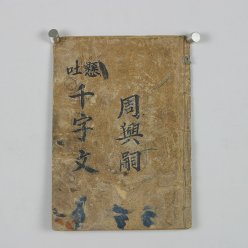 懸吐
千字文
周興嗣